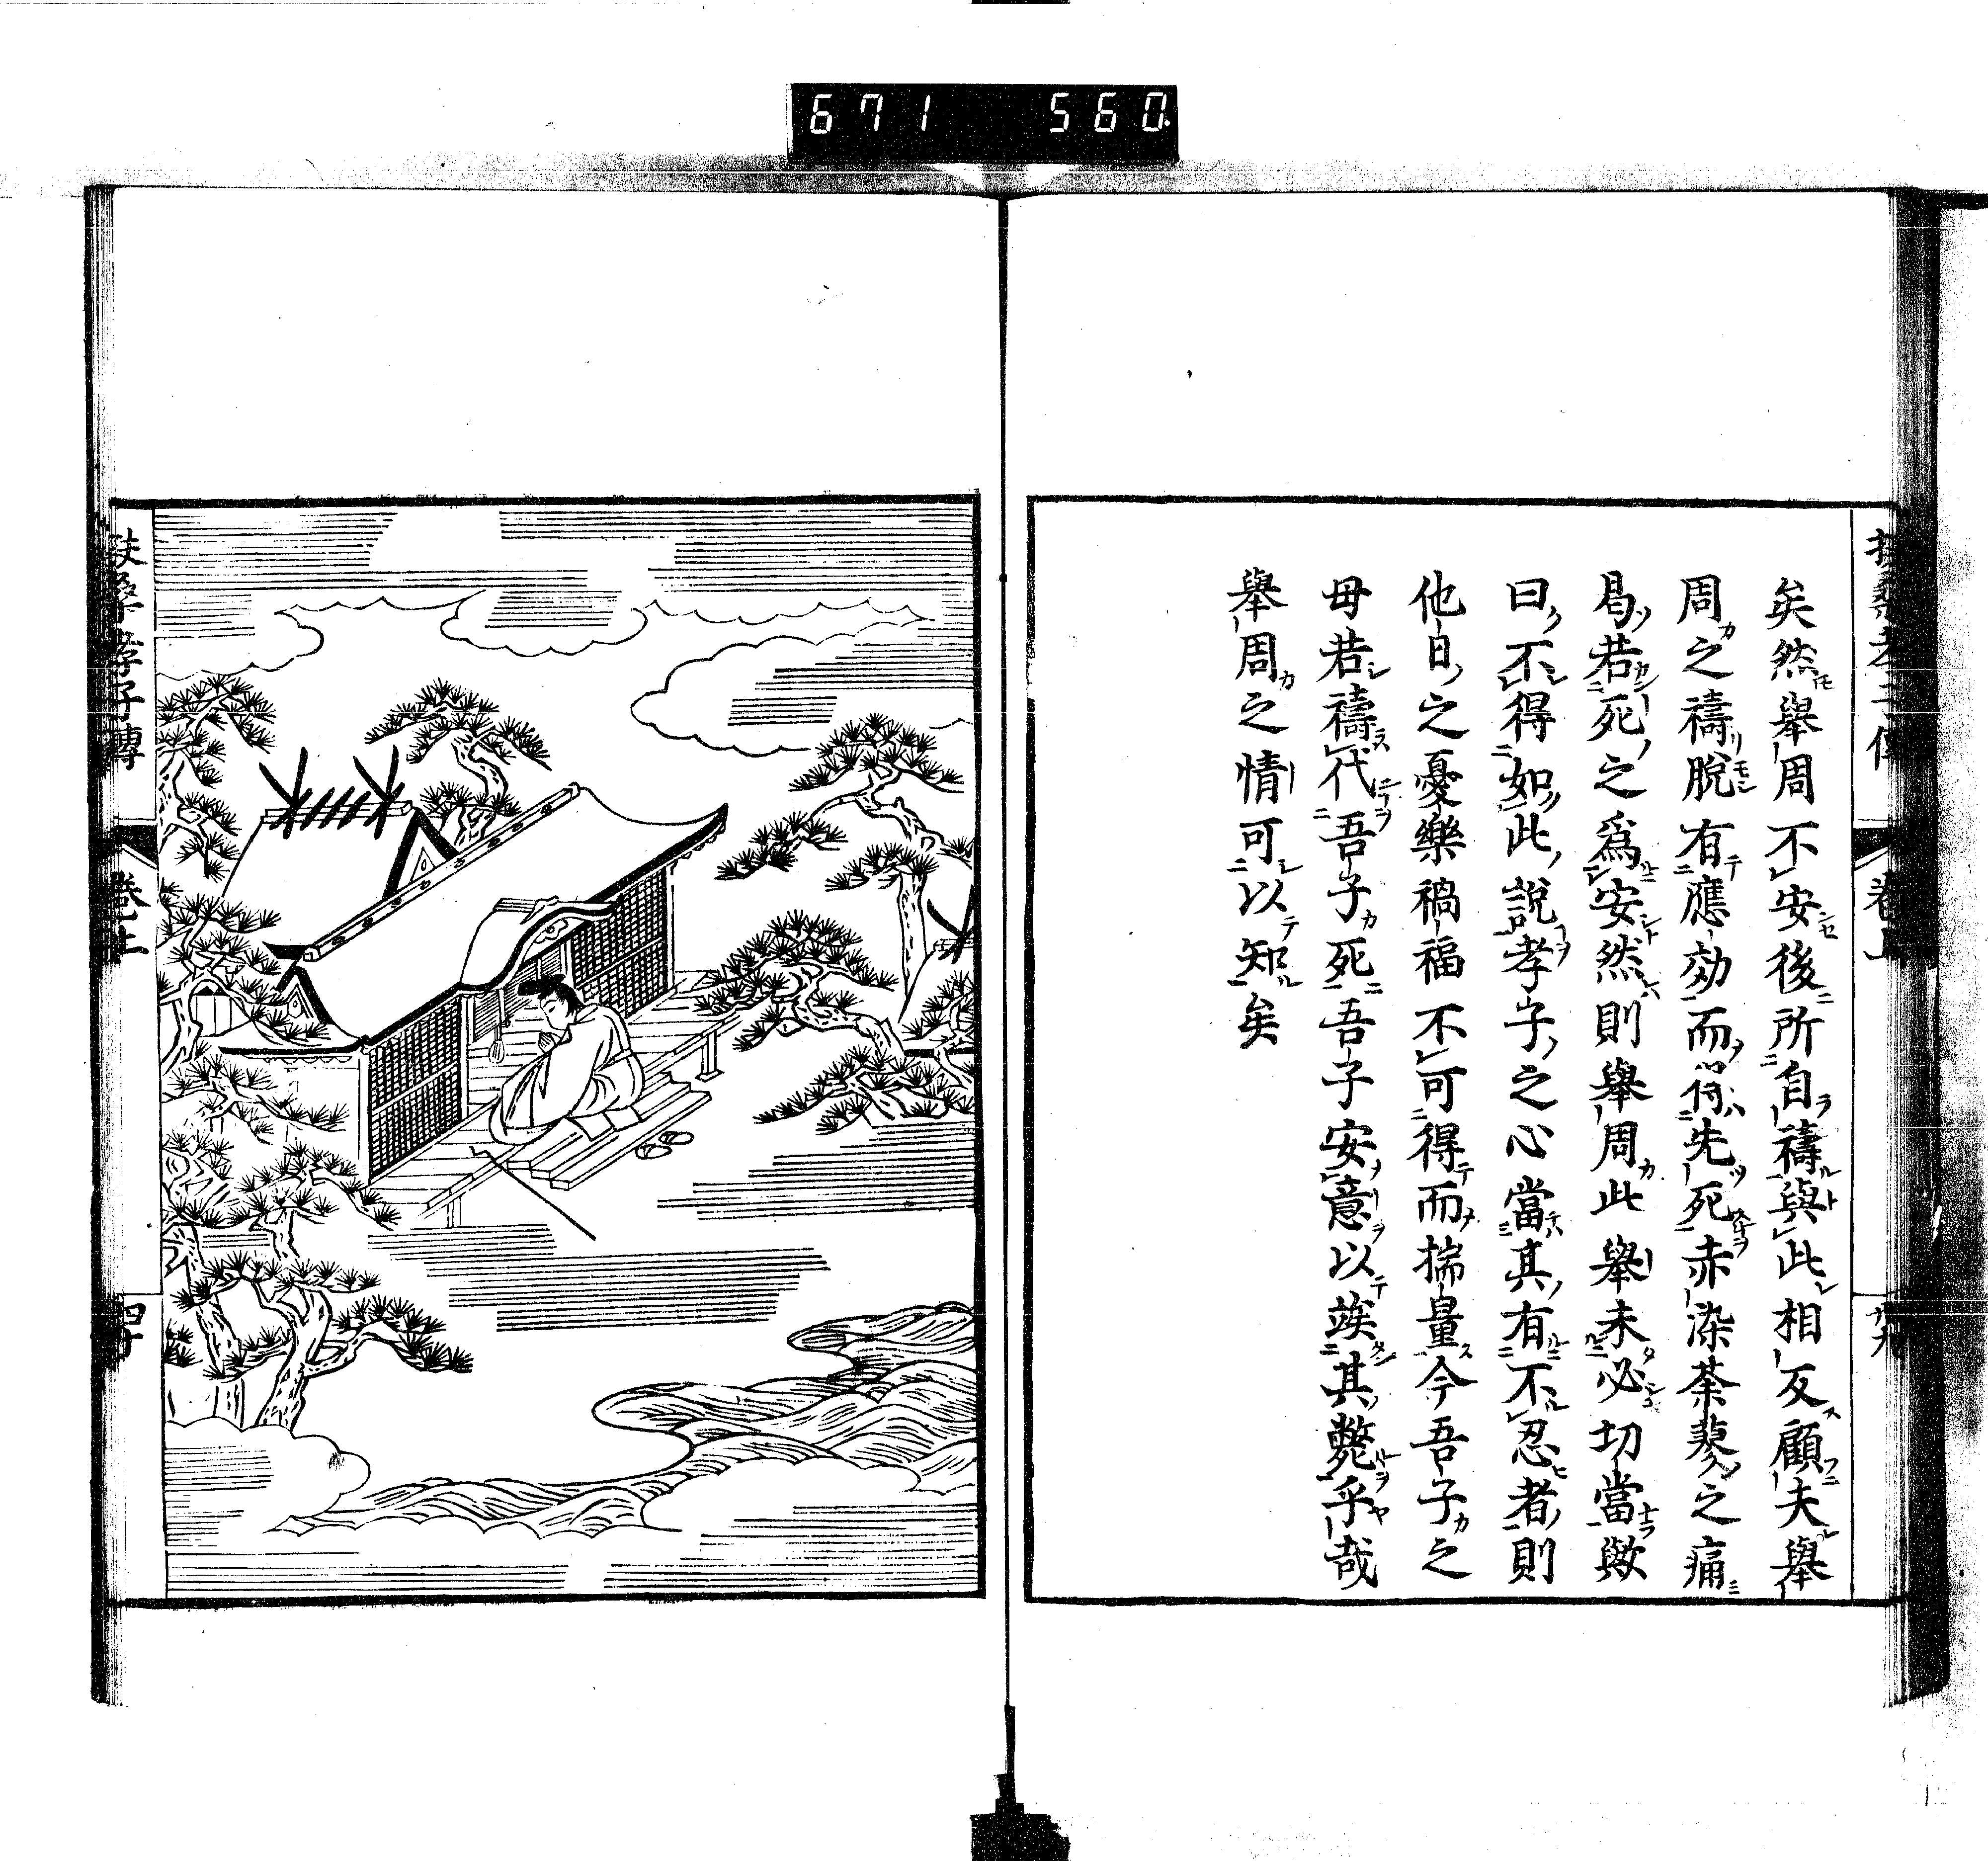 671 560
矣然舉周不安後所自禱與此相反顧夫舉
周之禱脫有應効而得先死赤染荼蓼之痛
曷若死之爲安然則舉周此舉未必切當歟
曰不得如此說孝子之心當其有不忍者則
他日之憂樂禍福不可得而揣量今吾子之
母若禱代吾子死吾子安意以竢其斃乎哉
舉周之情可以知矣
扶桑孝子傳
卷上